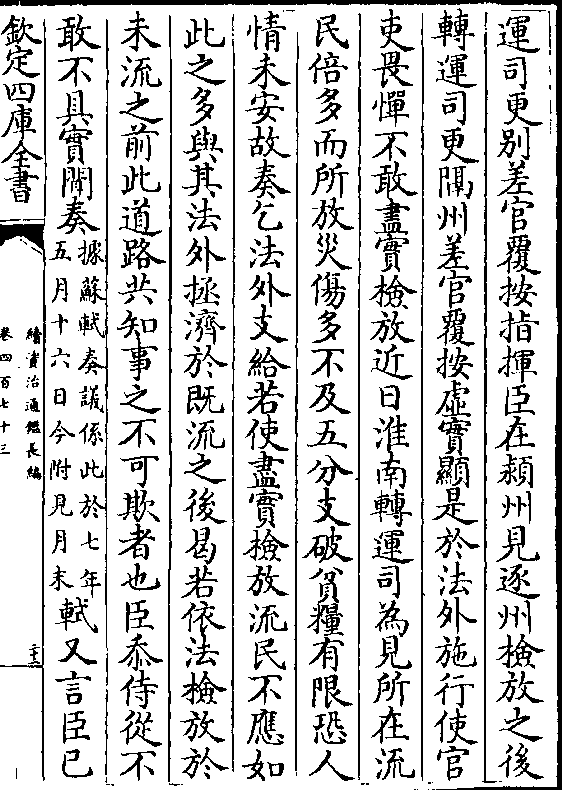 運司更别差官覆按指揮臣在潁州見逐州檢放之後
轉運司更隔州差官覆按虛實顯是於法外施行使官
吏畏憚不敢盡實檢放近日淮南轉運司為見所在流
民倍多而所放災傷多不及五分支破貧糧有限恐人
情未安故奏乞法外支給若使盡實檢放流民不應如
此之多與其法外拯濟於既流之後曷若依法檢放於
未流之前此道路共知事之不可欺者也臣忝侍從不
敢不具實聞奏據蘇軾奏議係此於七年五月十六日今附見月末軾又言臣已
欽定四庫全書
續資治通鑑長編
卷四百七十三